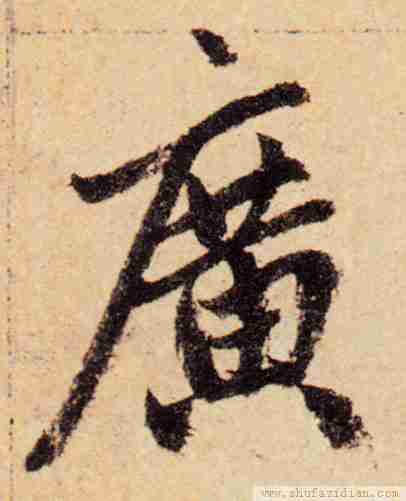 廣
www.shufazidian.com